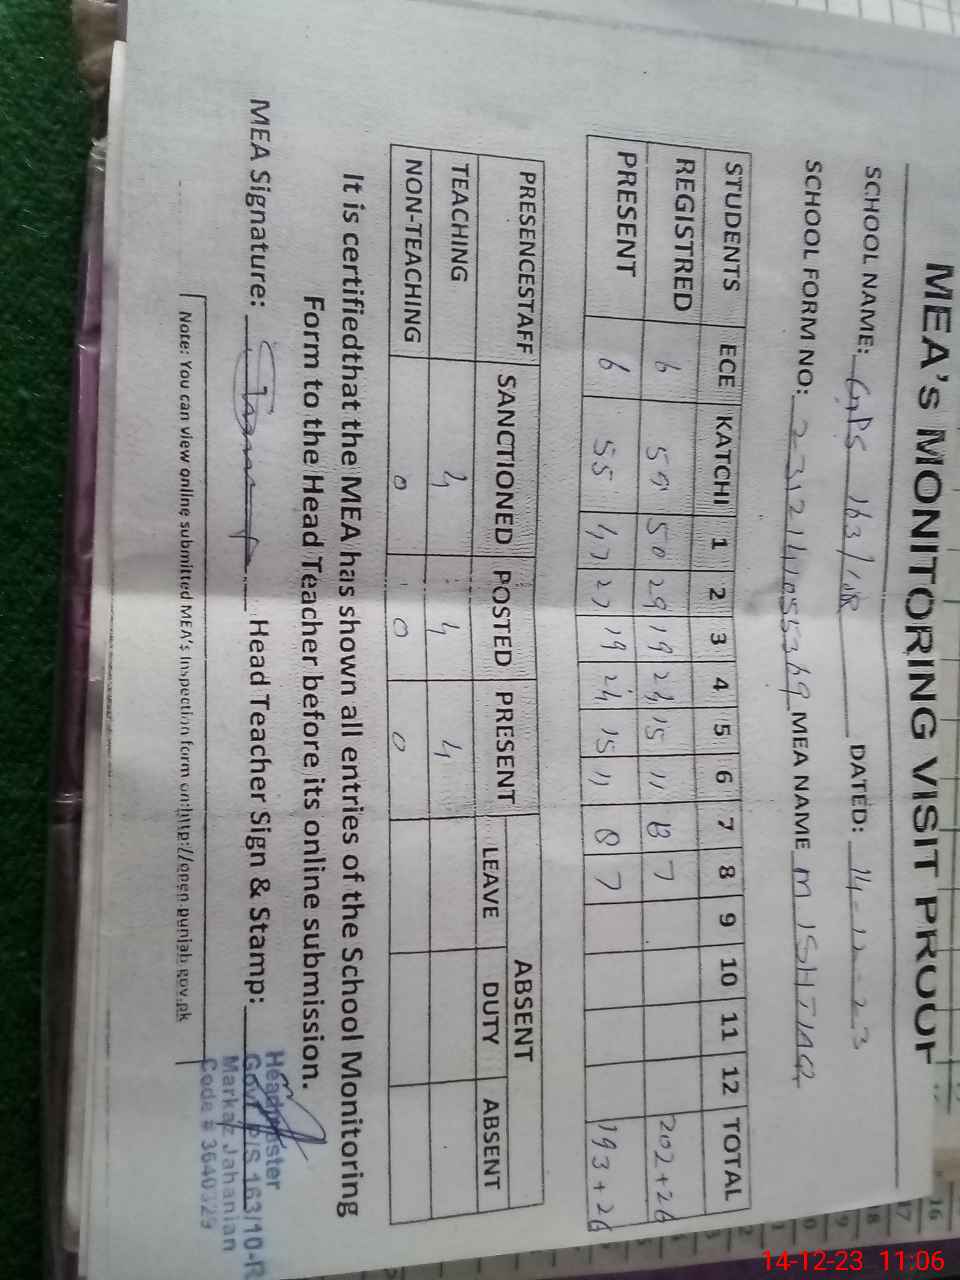 MEA'S MONITORING VISIT PROOF
SCHOOL NAME: GPS 163/10R DATED: 14-12-23
SCHOOL FORM NO: MEA NAME M ISHTIAQ
STUDENTS ECE KATCHI 1 2 3 4 5 6 7 8 9 10 11 12 TOTAL
REGISTRED 6 59 50 29 19 24 15 11 8 7 202+26
PRESENT 6 55 47 27 19 24 15 11 8 7 193+26
PRESENCESTAFF SANCTIONED POSTED PRESENT ABSENT
LEAVE DUTY ABSENT
TEACHING 4 4 4
NON-TEACHING 0 0 0
It is certifiedthat the MEA has shown all entries of the School Monitoring
Form to the Head Teacher before its online submission.
MEA Signature: Head Teacher Sign & Stamp:
Headmaster
Govt. P/S 163/10-R
Markaz Jahanian
Code # 3640329
Note: You can view online submitted MEA's Inspection form on:http://open.punjab.gov.pk
14-12-23 11:06